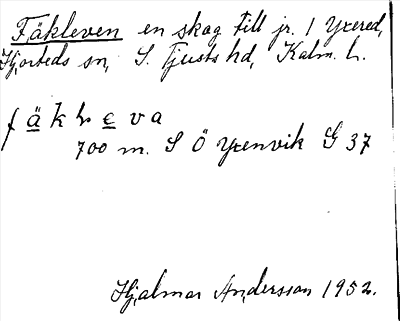 Fäkleven en skog till jr. 1 Yxered,
Hjorteds sn, S. Tjusts hd, Kalm. l.
f ä k l e v a
700 m. S Ö Yxenvik G 37
Hjalmar Andersson 1952.